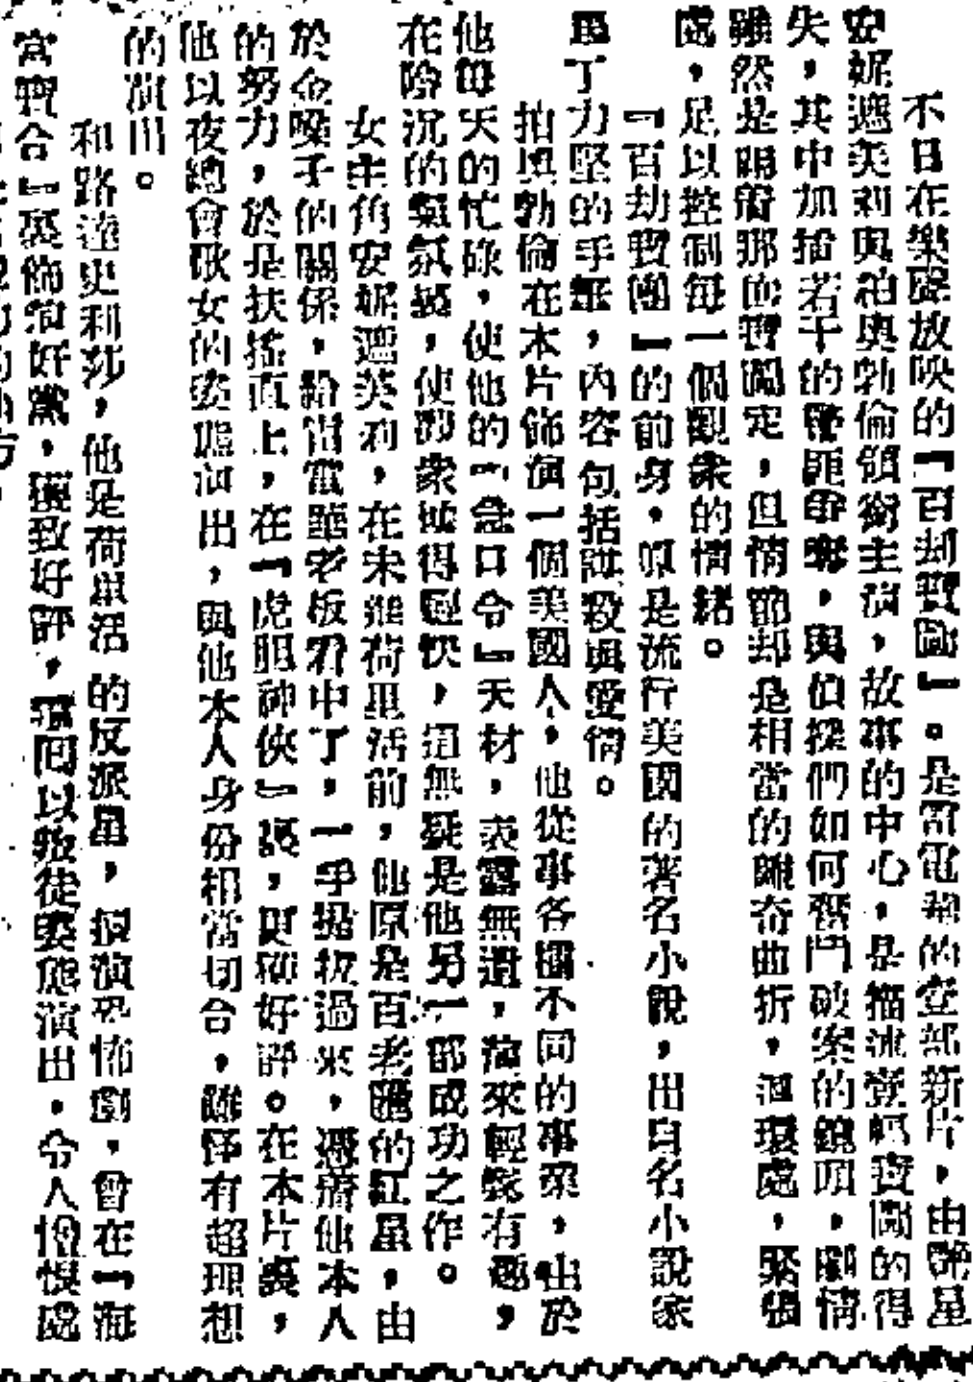 不日在樂聲放映的『百刦寶圖』。是雷電華的壹部新片，由艷星
安妮遮美利與柏奧勃倫領銜主演，故事的中心，是描述壹幅寶圖的得
失，其中加插若干的，與伯探們如何奮鬥破案的鏡頭，劇情
雖然是跟着那幅寶圖定，但情節却是相當的離奇曲折，連環處，緊張
處，足以控制每一個觀衆的情緒。
『百劫寶圖』的前身，原是流行美國的著名小說，出自名小說家
丁力堅的手筆，內容包括謀殺與愛情。
拍奧勃倫在本片飾演一個美國人，他從事各種不同的事業，由於
他每天的忙碌，使他的『急口令』天材，表露無遺，演來輕鬆有趣，
在陰沉的氣氛裏，使那衆變得輕快，這無疑是他另一部成功之作。
女主角安妮遮美利，在未進荷里活前，他原是百老匯的紅星，由
於金嗓子的關係，給雷電華老板看中了，一手提拔過來，憑着他本人
的努力，於是扶搖直上，在『虎胆神俠』裏，更獲好評。在本片裏，
他以夜總會歌女的姿態演出，與他本人身份相當切合，難怪有超理想
的演出。
和路達史利莎，他是荷里活的反派星，慣演恐怖劇，曾在『海
宮寶合』裏飾演奸黨，獲致好評，這回以叛徒姿態演出，令人憎恨處